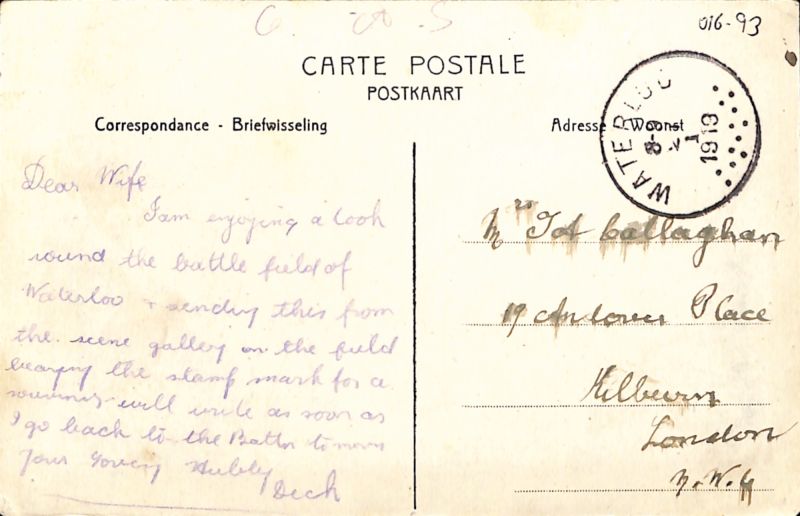 016-93
CARTE POSTALE
POSTKAART
Correspondance - Briefwisseling
Adresse - Woonst
WATERLOO
8-9
1
1919
Dear Wife
I am enjoying a look
round the battle field of
Waterloo + sending this from
the scene gallery on the field
bearing the stamp mark for a
souvenir will write as soon as
I go back to the Battn tomorrow
Your loving Hubby
Dick
Mrs Callaghan
19 Andover Place
Kilburn
London
N.W.6